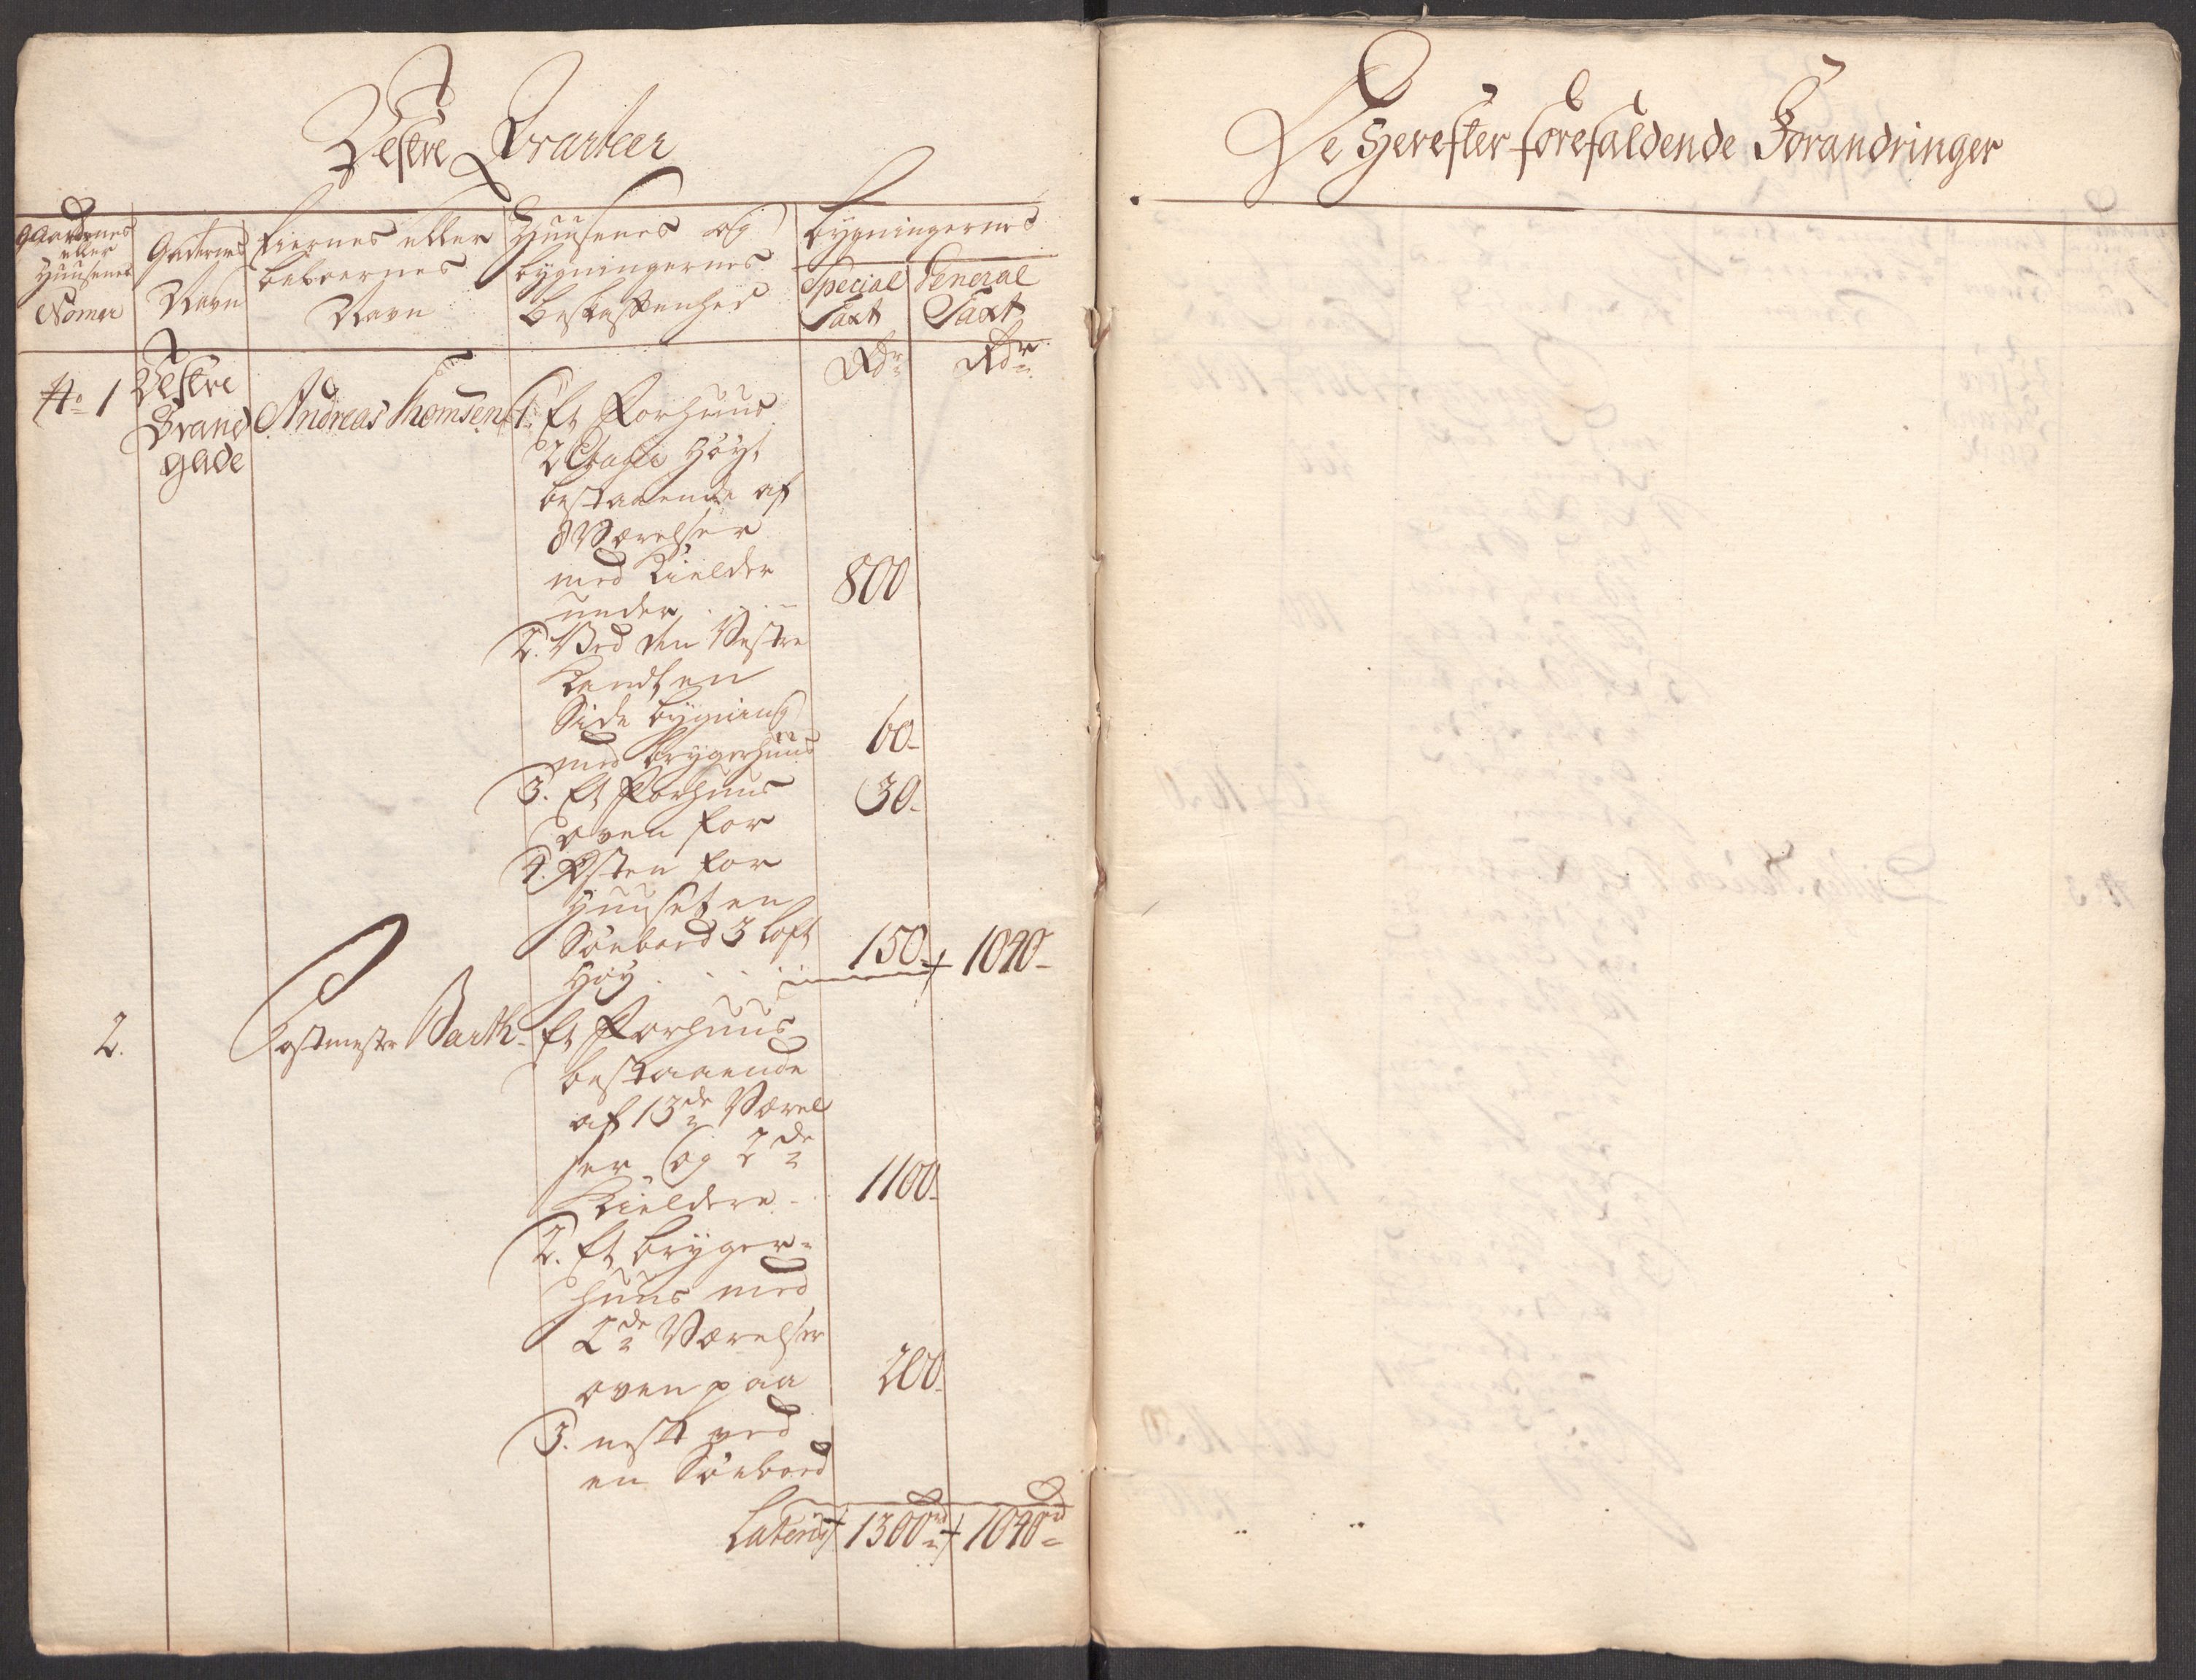 Vestre Qvarteer
Gaardenes eller Huusenes Nomer
Gadernes Navn
Eiernes eller beboernes Navn
Huusenes og bygningernes beskaffenhed
bygningernes
Special Taxt
General Taxt
Rdr
Rdr
No 1
Vestre
Strand
gade
Andreas Thomsen
1. Et Forhuus
2 Etage Høyt
bestaaende af
8 Værelser
med Kielder
under . . . 800
2. Ved den Vestre
Kandt en
Side bygning
med Brygerhuus 60-
3. Et Forhuus 30-
oven for
4. Østen for
Huuset en
Søeboed 3 Loft
Høy . . . . 150 1040-
2.
Postmester Barth-
Et Forhuus
bestaaende
af 13de Værel
ser og 2de
Kieldere - 1100-
2. Et bryger-
huus med
2de Værelser
oven paa 200-
3. nest ved
en Søeboed
Lateris 1300rd 1040rd
De Herefter forefaldende Forandringer